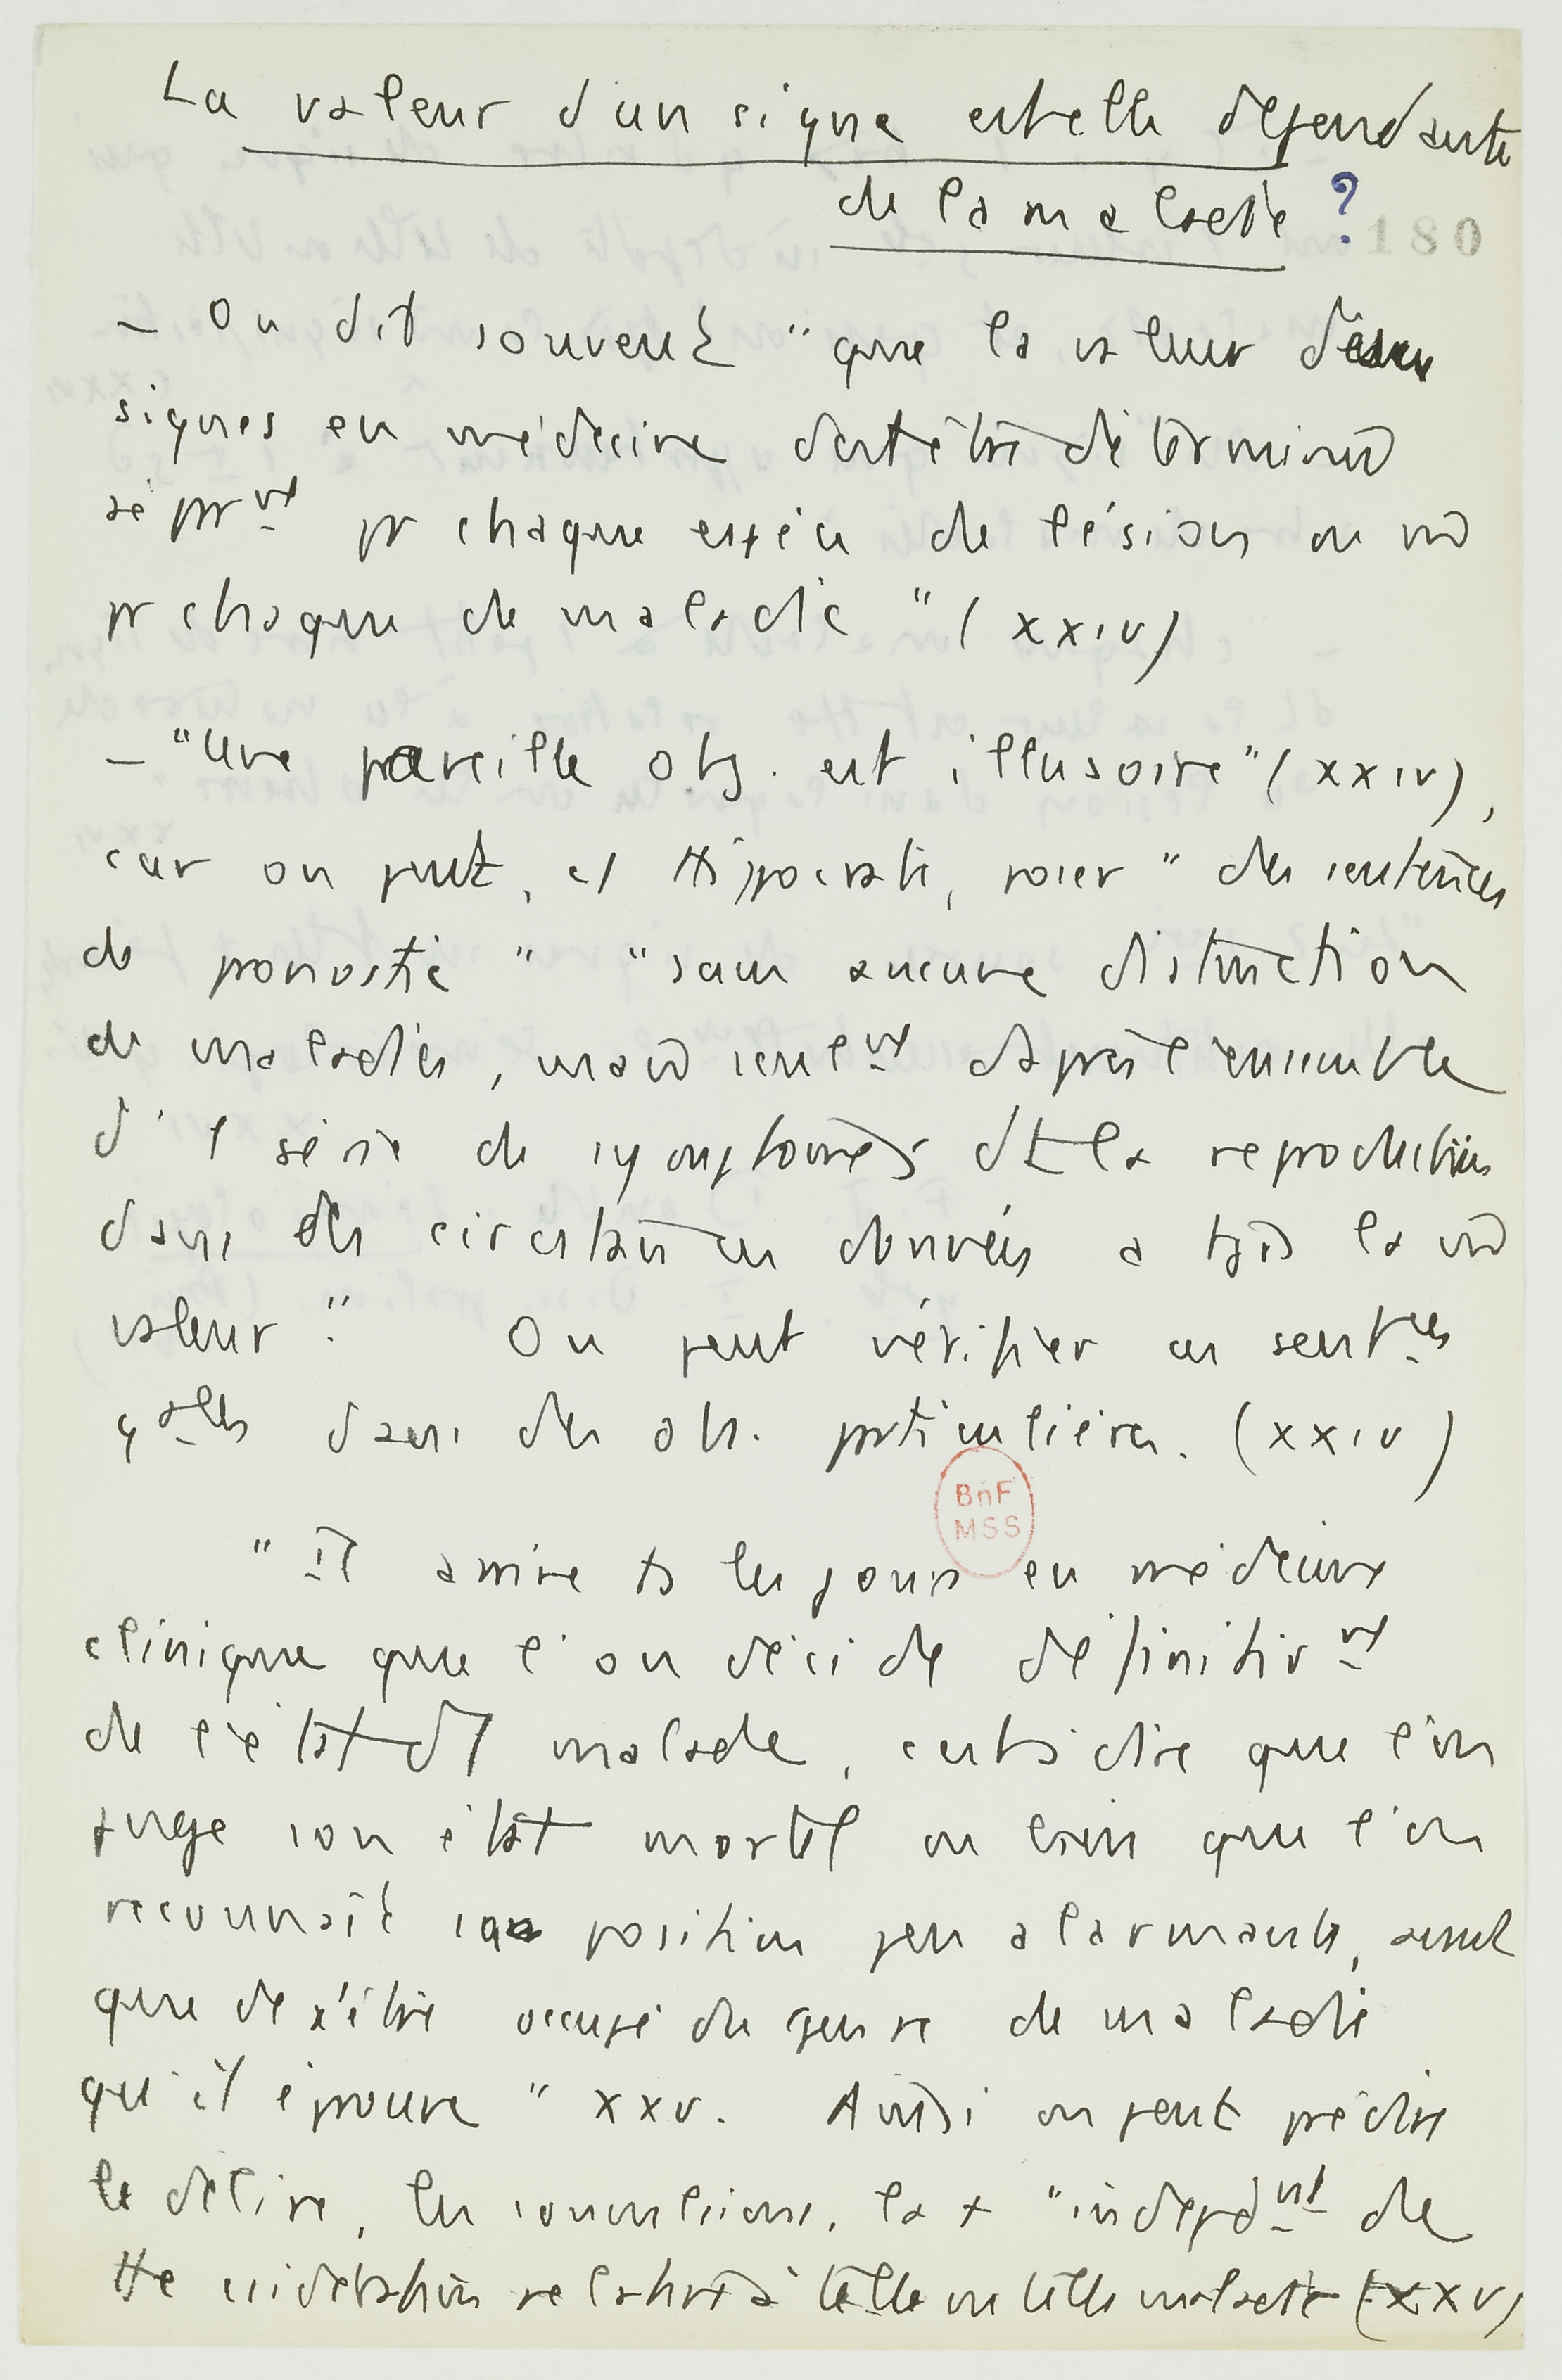 La valeur d'un signe est elle dépendante
de la maladie ?
180
– On dit souvent "que la valeur des
signes en médecine doit être déterminée
séparnt pr chaque espèce de lésion ou m̂
pr chaque de maladie" (XXIV)
– "Une pareille obj. est illusoire" (XXIV),
car on peut, cf Hippocrate, poser "des sentences
de pronostic" "sans aucune distinction
de maladies, mais seulnt d'après l'ensemble
d'1 série de symptômes dt la reproduction
dans des circonstances données a tjs la m̂
valeur". On peut vérifier ces sentces
gales dans des obs. particulières. (XXIV)
"Il arrive ts les jours en médecine
clinique que l'on décide définitivnt
de l'état d'1 malade, c'est à dire que l'on
juge son état mortel ou bien que l'on
reconnaît sa position peu alarmante, avant
que de s'être occupé du genre de maladie
qu'il éprouve" XXV. Ainsi on peut prédire
le délire, les convulsions, la + "indépdnt de
tte considération relative à telle ou telle maladie (XXV)
BnF
MSS